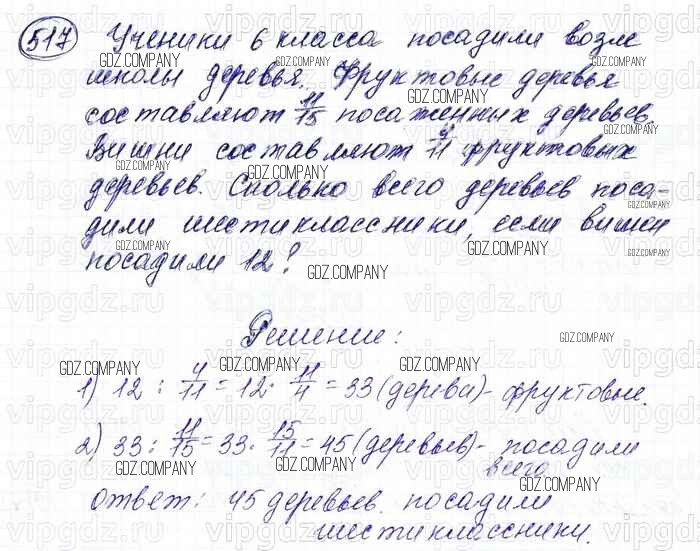 517 Ученики 6 класса посадили возле
школы деревья. Фруктовые деревья
составляют 11/15 посаженных деревьев.
Вишни составляют 4/11 фруктовых
деревьев. Сколько всего деревьев поса-
дили шестиклассники, если вишен
посадили 12?
Решение:
1) 12 : 4/11 = 12 · 11/4 = 33 (дерева) - фруктовые.
2) 33 : 11/15 = 33 · 15/11 = 45 (деревьев) - посадили
всего
ответ: 45 деревьев посадили
шестиклассники.
GDZ.COMPANY
vipgdz.ru